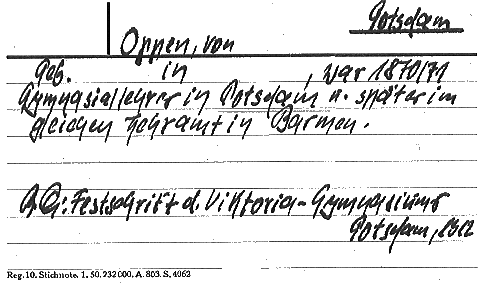 Potsdam
Oppen, von
Geb. in , war 1870/71
Gymnasiallehrer in Potsdam u. später im
gleichen Lehramt in Barmen.
Festschrift d. Viktoria-Gymnasiums
Potsdam, 1912
Reg. 10. Stichnote. 1. 50. 232 000. A. 803. S. 4062